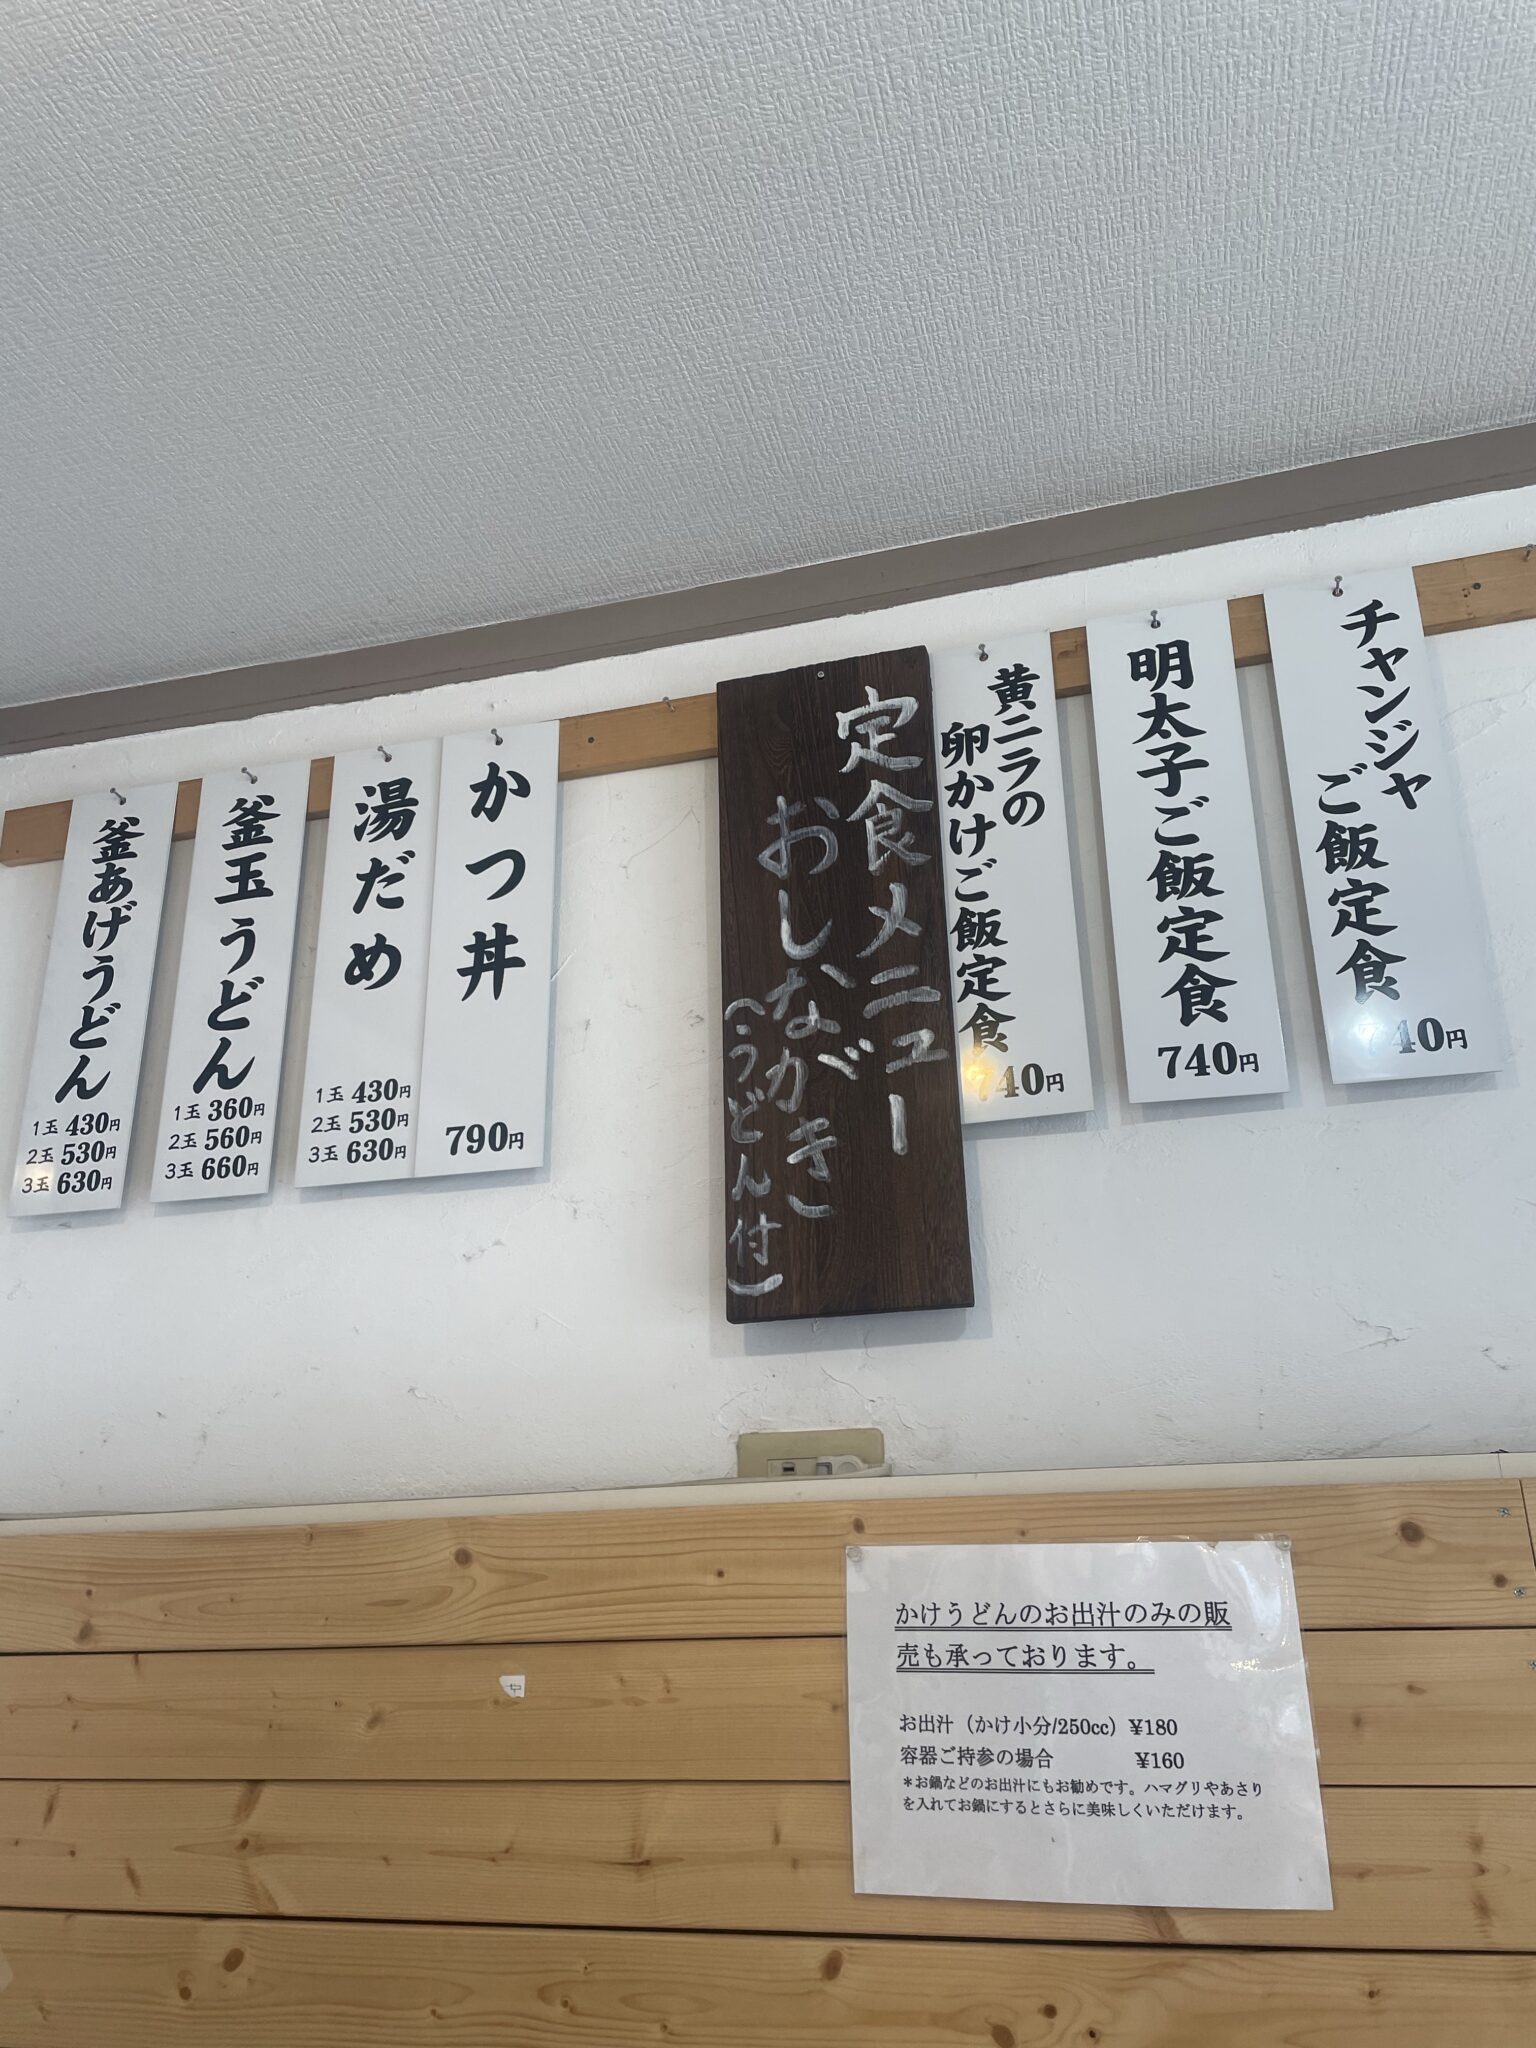 釜あげうどん
1玉 430円
2玉 530円
3玉 630円
釜玉うどん
1玉 360円
2玉 560円
3玉 660円
湯だめ
1玉 430円
2玉 530円
3玉 630円
かつ丼
790円
定食メニュー
おしながき
(うどん付)
黄ニラの
卵かけご飯定食
740円
明太子ご飯定食
740円
チャンジャ
ご飯定食
740円
かけうどんのお出汁のみの販
売も承っております。
お出汁（かけ小分/250cc）¥180
容器ご持参の場合 ¥160
＊お鍋などのお出汁にもお勧めです。ハマグリやあさり
を入れてお鍋にするとさらに美味しくいただけます。